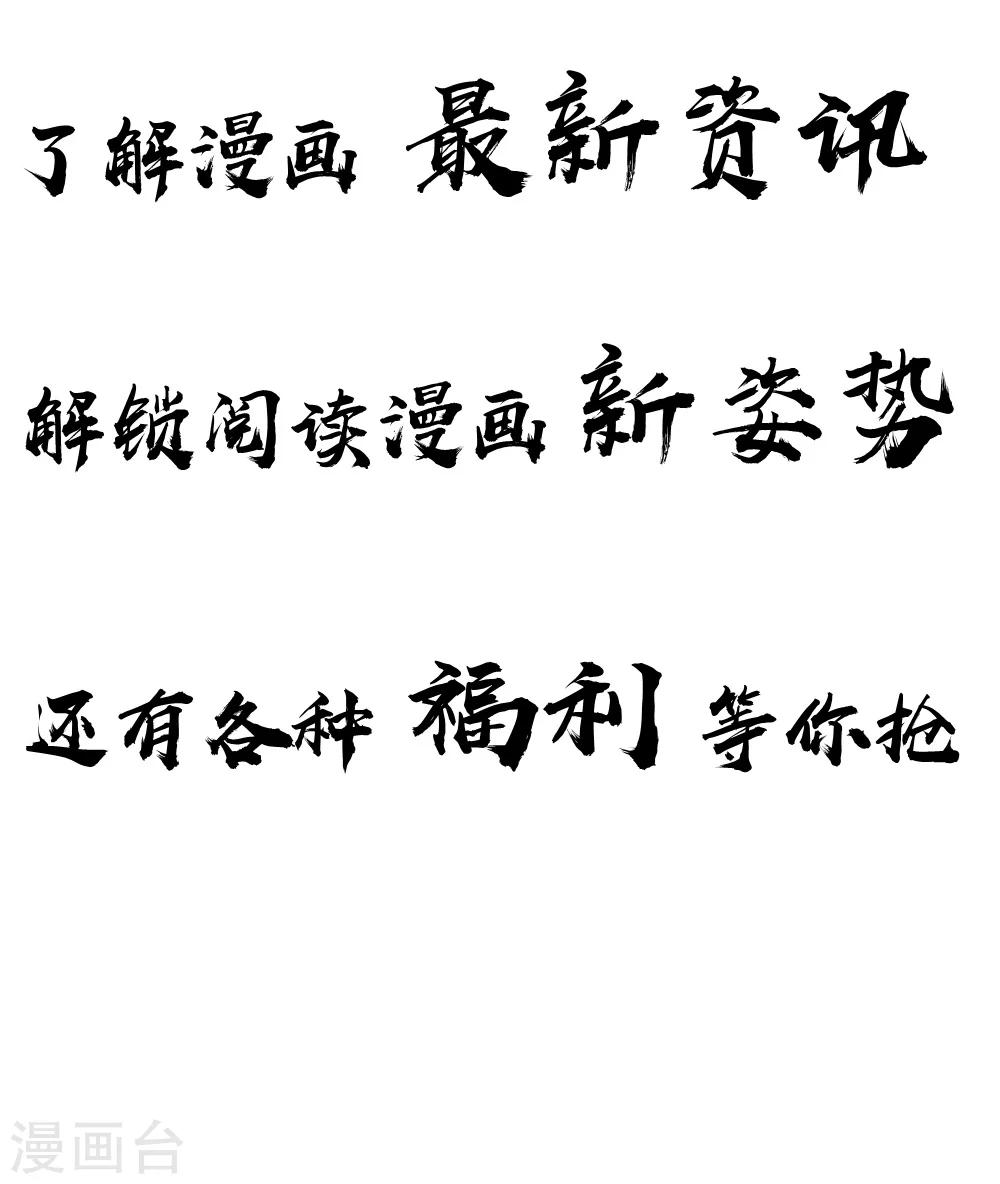 了解漫画 最新资讯
解锁阅读漫画 新姿势
还有各种 福利 等你抢
漫画台